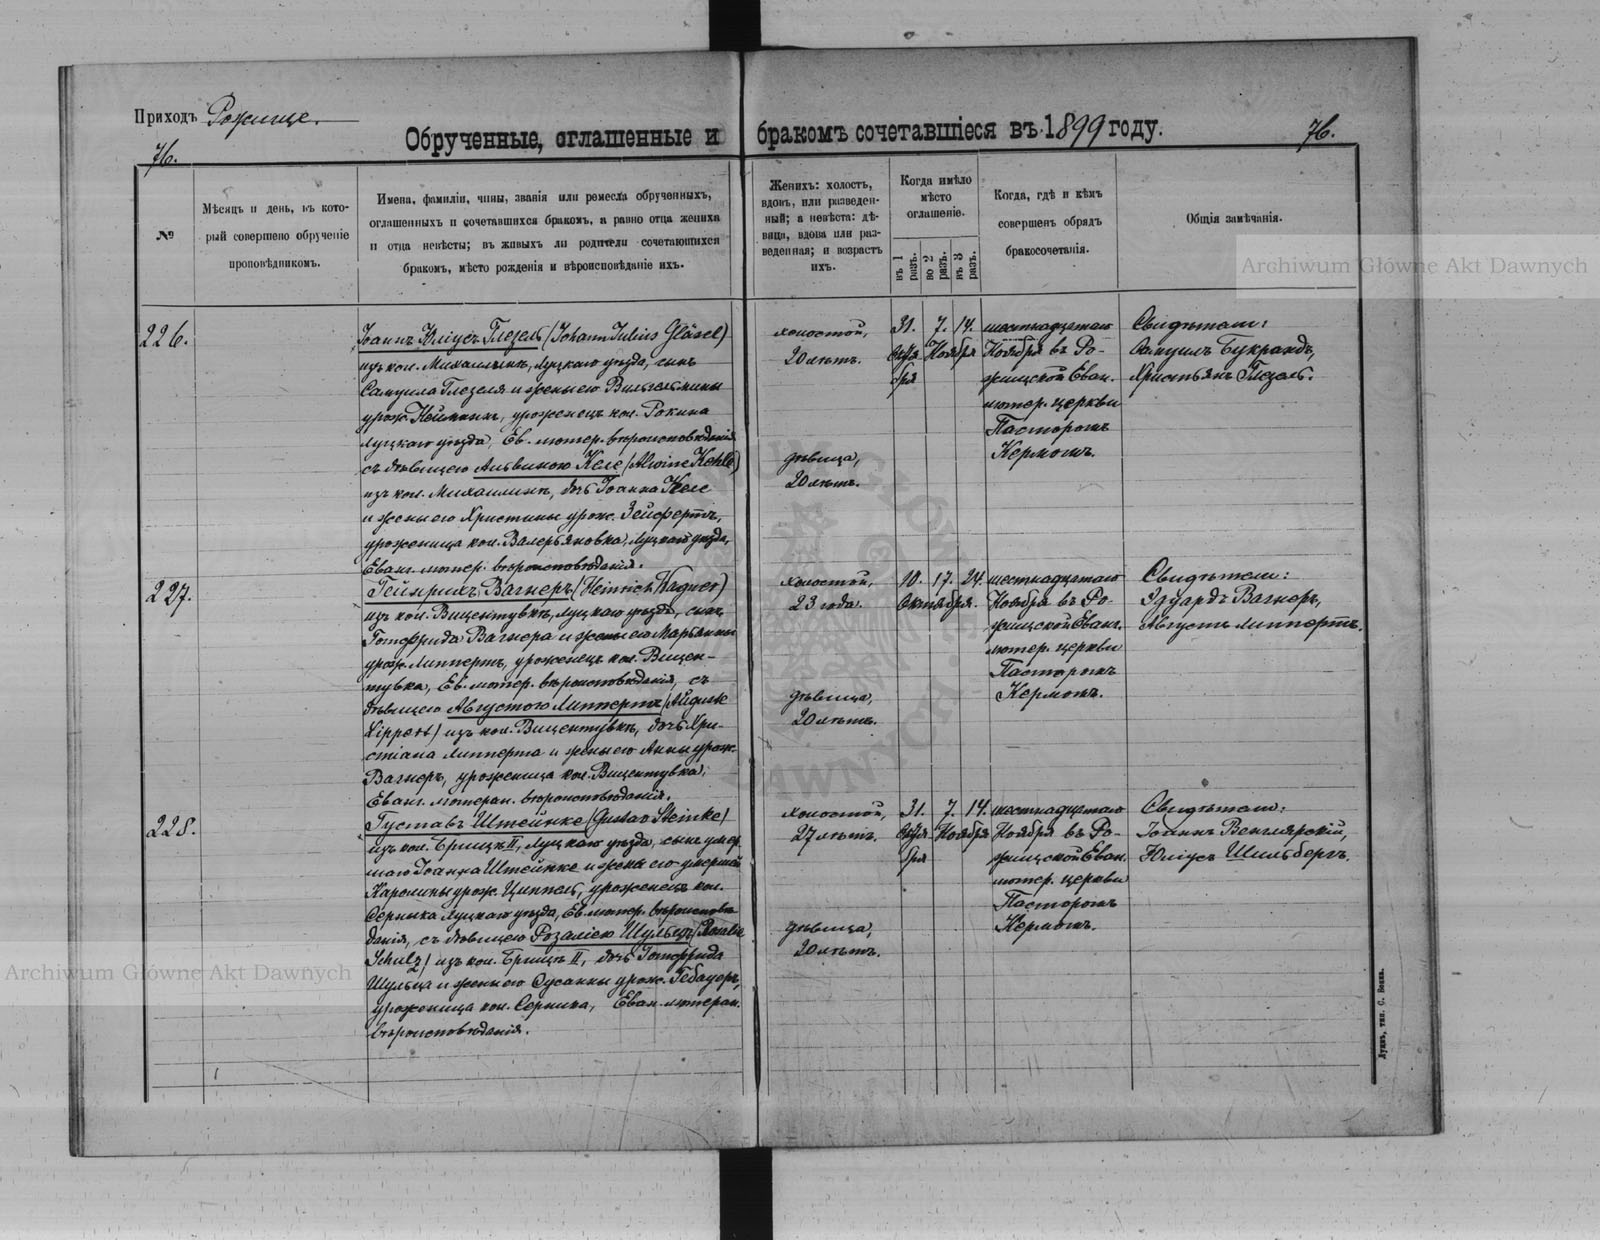 Приходъ Рожище.
Обрученные, оглашенные и бракомъ сочетавшіеся въ 1899 году.
76.
76.
№
Мѣсяцъ и день, въ кото-
рый совершено обрученіе
проповѣдникомъ.
Имена, фамиліи, чины, званія или ремесла обрученныхъ,
оглашенныхъ и сочетавшихся бракомъ, а равно отца жениха
и отца невѣсты; въ живыхъ ли родители сочетающихся
бракомъ, мѣсто рожденія и вѣроисповѣданіе ихъ.
Женихъ: холостъ,
вдовъ, или разведен-
ный; а невѣста: дѣ-
вица, вдова или раз-
веденная; и возрастъ
ихъ.
Когда имѣло
мѣсто
оглашеніе.
въ 1 разъ.
во 2 разъ.
въ 3 разъ.
Когда, гдѣ и кѣмъ
совершенъ обрядъ
бракосочетанія.
Общія замѣчанія.
226.
Іоаннъ Юліусъ Глезель (Johann Julius Gläsel)
изъ кол. Михалинъ, Луцкаго уѣзда, сынъ
Самуила Глезеля и жены его Вильгельмины
урож. Нейманъ, уроженецъ кол. Рокина
Луцкаго уѣзда, Ев. лютер. вѣроисповѣданія
съ дѣвицею Альвиною Келе (Alwine Kehle)
изъ кол. Михалинъ, дочь Іоанна Келе
и жены его Христины урож. Зейфертъ,
уроженица кол. Валерьяновка, Луцкаго уѣзда,
Еванг. лютер. вѣроисповѣданія.
холостой,
20 лѣтъ.
дѣвица,
20 лѣтъ.
31. 7. 14.
Октя Ноября
бря
шестнадцатаго
Ноября въ Ро-
жищской Еван.
лютер. церкви
Пасторомъ
Кермомъ.
Свидѣтели:
Самуилъ Букрандъ,
Христьянъ Глезель.
227.
Гейнрихъ Вагнеръ (Heinrich Wagner)
изъ кол. Вицентувкѣ, Луцкаго уѣзда, сынъ
Готфрида Вагнера и жены его Марьянны
урож. Липпертъ, уроженецъ кол. Вицен-
тувка, Ев. лютер. вѣроисповѣданія, съ
дѣвицею Августою Липпертъ (Auguste
Lippert) изъ кол. Вицентувкѣ, дочь Хри-
стіана Липперта и жены его Анны урож.
Вагнеръ, уроженица кол. Вицентувка,
Еванг. лютеран. вѣроисповѣданія.
холостой,
23 года.
дѣвица,
20 лѣтъ.
10. 17. 24.
Октября.
шестнадцатаго
Ноября въ Ро-
жищской Еванг.
лютер. церкви
Пасторомъ
Кермомъ.
Свидѣтели:
Эдуардъ Вагнеръ,
Августъ Липпертъ.
228.
Густавъ Штейнке (Gustav Steinke)
изъ кол. Брищъ II, Луцкаго уѣзда, сынъ умер-
шаго Іоанна Штейнке и жены его умершей
Каролины урож. Циппель, уроженецъ кол.
Серныка Луцкаго уѣзда, Ев. лютер. вѣроисповѣ
данія, съ дѣвицею Розаліею Шульцъ (Rosalie
Schulz) изъ кол. Брищъ II, дочь Готфрида
Шульца и жены его Сусанны урож. Гебауеръ,
уроженица кол. Серныка, Еван. лютеран.
вѣроисповѣданія.
холостой,
27 лѣтъ.
дѣвица,
20 лѣтъ.
31. 7. 14.
Октя Ноября
бря
шестнадцатаго
Ноября въ Ро-
жищской Еван.
лютер. церкви
Пасторомъ
Кермомъ.
Свидѣтели:
Іоаннъ Венглярскій,
Юліусъ Шильбергъ.
Луцкъ, тип. С. Бокка.
Archiwum Główne Akt Dawnych
Archiwum Główne Akt Dawnych